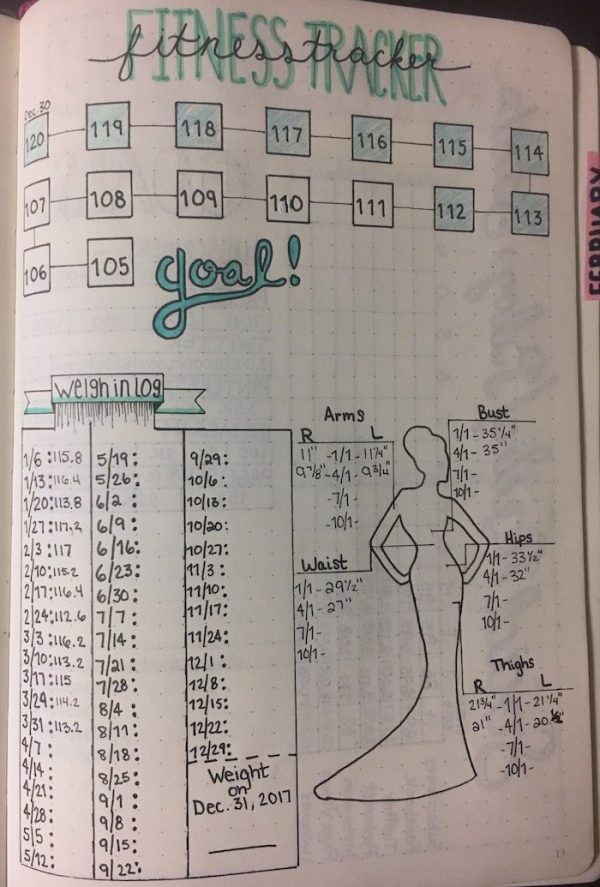 FITNESS TRACKER
fitness tracker
Dec. 30
120 119 118 117 116 115 114
107 108 109 110 111 112 113
106 105 goal!
FEBRUARY
Weigh in Log
1/6 : 115.8
1/13 : 116.4
1/20 : 113.8
1/27 : 117.2
2/3 : 117
2/10 : 115.2
2/17 : 116.4
2/24 : 112.6
3/3 : 116.2
3/10 : 113.2
3/17 : 115
3/24 : 114.2
3/31 : 113.2
4/7 :
4/14 :
4/21 :
4/28 :
5/5 :
5/12 :
5/19 :
5/26 :
6/2 :
6/9 :
6/16 :
6/23 :
6/30 :
7/7 :
7/14 :
7/21 :
7/28 :
8/4 :
8/11 :
8/18 :
8/25 :
9/1 :
9/8 :
9/15 :
9/22 :
9/29 :
10/6 :
10/13 :
10/20 :
10/27 :
11/3 :
11/10 :
11/17 :
11/24 :
12/1 :
12/8 :
12/15 :
12/22 :
12/29 :
Weight
on
Dec. 31, 2017
Arms
R L
11" - 1/1 - 11 1/4"
9 7/8" - 4/1 - 9 3/4"
- 7/1 -
- 10/1 -
Bust
1/1 - 35 1/4"
4/1 - 35"
7/1 -
10/1 -
Waist
1/1 - 29 1/2"
4/1 - 27"
7/1 -
10/1 -
Hips
1/1 - 33 1/2"
4/1 - 32"
7/1 -
10/1 -
Thighs
R L
21 3/4" - 1/1 - 21 1/4"
21" - 4/1 - 20 1/2"
- 7/1 -
- 10/1 -
13